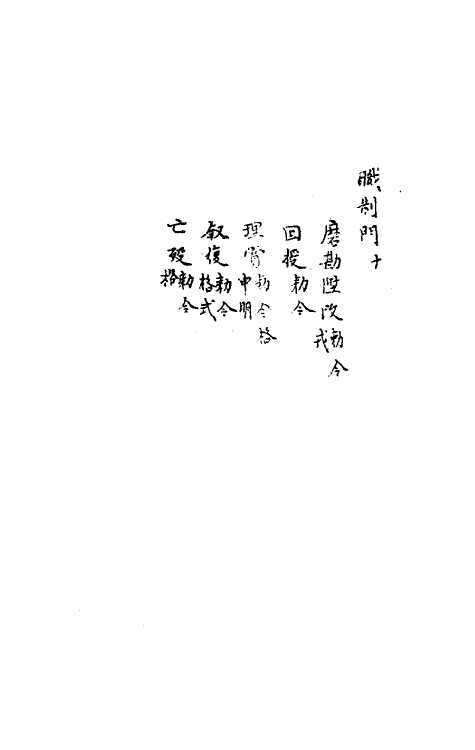 職制門十
磨勘陞改勅令式
回授勅令
理賞勅令格申明
叙復勅令格式
亡歿勅令格